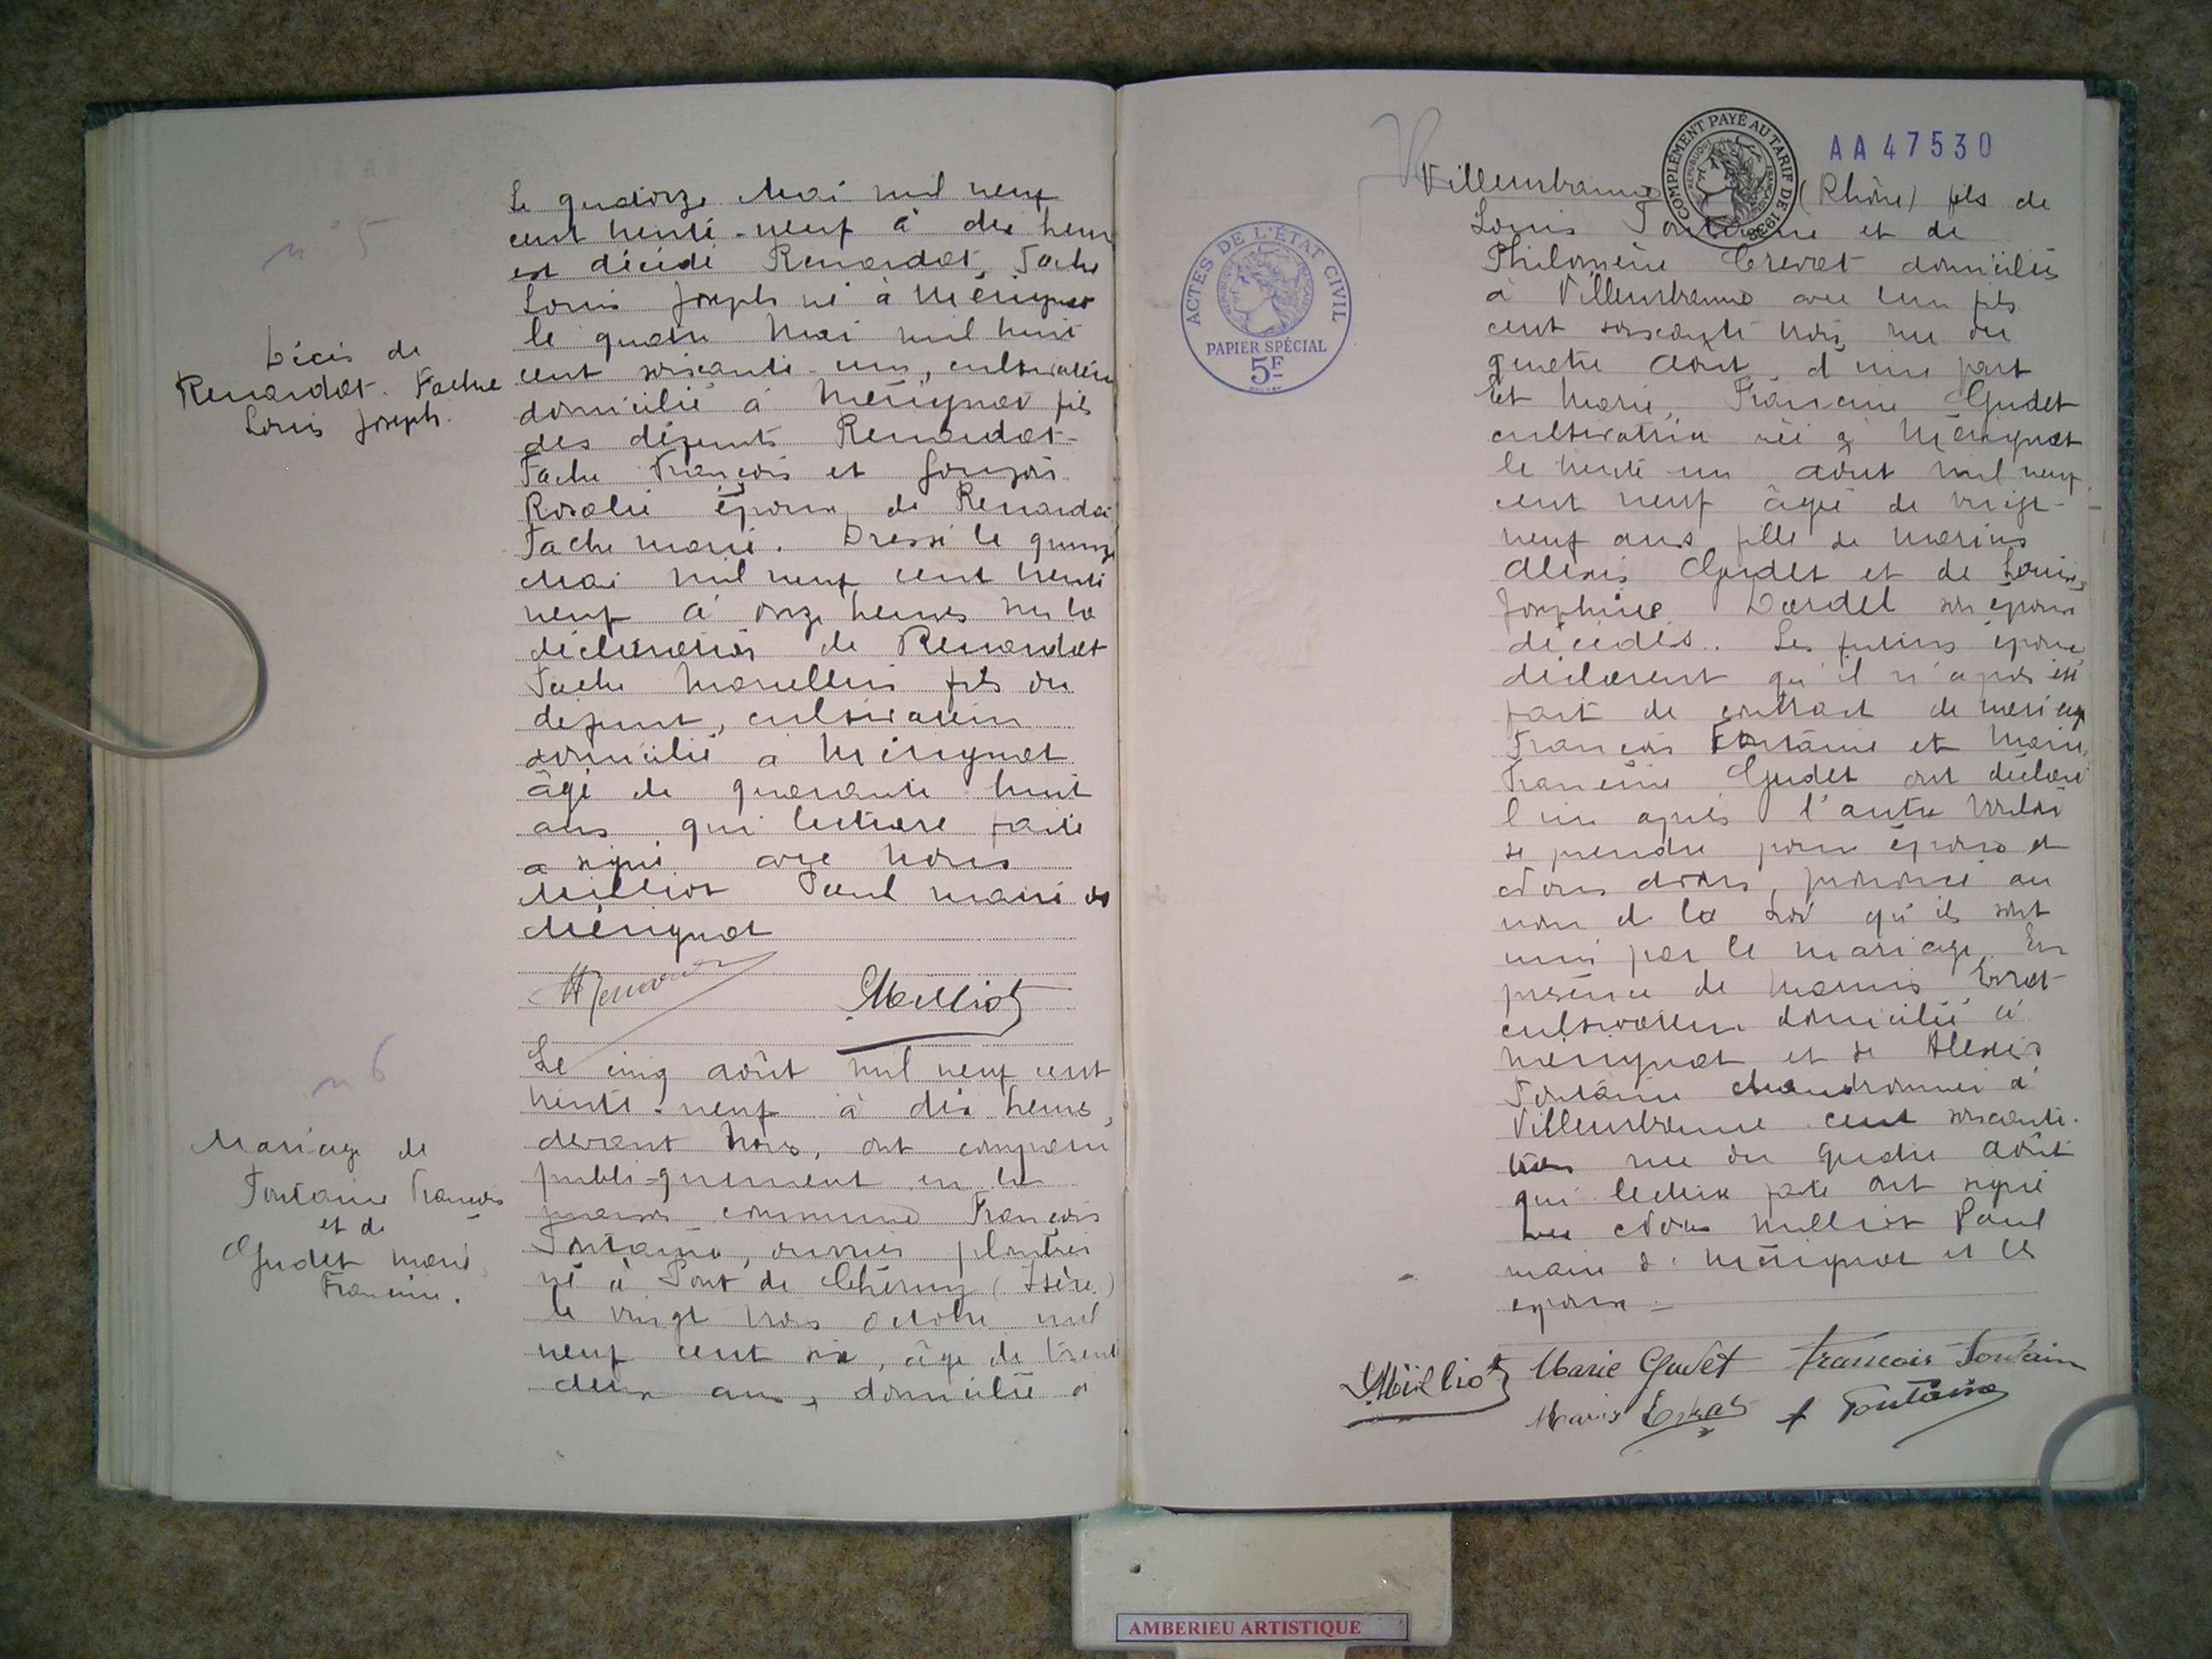 n° 5
Décès de
Renardat. Fache
Louis Joseph.
Le quatorze Mai mil neuf
cent trente-neuf à dix heures
est décédé Renardat, Fache
Louis Joseph né à Mérignat
le quatre Mai mil huit
cent soixante-un, cultivateur
domicilié à Mérignat fils
des défunts Renardat-
Fache François et
Rosalie époux de Renardat
Fache Marie. Dressé le quinze
Mai mil neuf cent trente
neuf à onze heures sur la
déclaration de Renardat
Fache Marcellin fils du
défunt, cultivateur
domicilié à Mérignat
âgé de quarante huit
ans qui lecture faite
a signé avec Nous
Milliot Paul maire de
Mérignat
Milliot
n 6
Mariage de
Fontaine François
et de
Gudet Marie
Francine.
Le cinq août mil neuf cent
trente-neuf à dix heures,
devant Nous, ont comparu
publi-quement en la
maison commune François
Fontaine, ouvrier plâtrier
né à Pont de Chéruy (Isère)
le vingt trois octobre mil
neuf cent six, âgé de trente
deux ans, domicilié à
ACTES DE L'ÉTAT CIVIL
PAPIER SPÉCIAL
5F
COMPLÉMENT PAYÉ AU TARIF DE 1938
AA 47530
Villeurbanne (Rhône) fils de
Louis Fontaine et de
Philomène Crevat domiciliés
à Villeurbanne avec leur fils
cent soixante trois rue du
quatre Août, d'une part
Et Marie, Francine Gudet
cultivatrice née à Mérignat
le trente un août mil neuf
cent neuf âgée de vingt-
neuf ans fille de Marius
Alexis Gudet et de Louise
Joséphine Dardel son épouse
décédés. Les futurs époux
déclarent qu'il n'a pas été
fait de contrat de mariage
François Fontaine et Marie
Francine Gudet ont déclaré
l'un après l'autre vouloir
se prendre pour époux et
Nous avons, prononcé au
nom de la Loi qu'ils sont
unis par le mariage. En
présence de Marius
cultivateur domicilié à
Mérignat et de Alexis
Fontaine chaudronnier à
Villeurbanne cent soixante-
trois rue du quatre août
qui lecture faite ont signé
avec Nous Milliot Paul
maire de Mérignat et les
époux -
Milliot Marie Gudet François Fontaine
Marius f Fontaine
AMBERIEU ARTISTIQUE